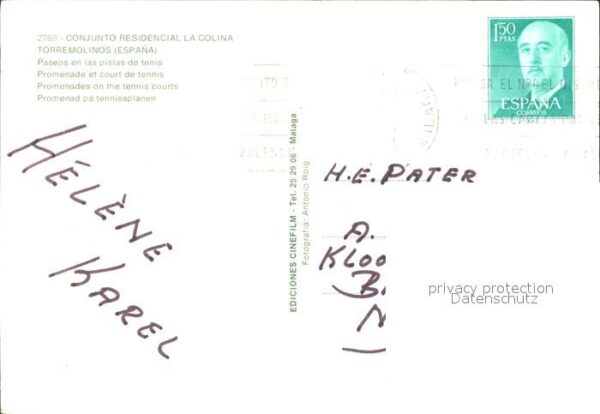 2769 - CONJUNTO RESIDENCIAL LA COLINA
TORREMOLINOS (ESPAÑA)
Paseos en las pistas de tenis
Promenade et court de tennis
Promenades on the tennis courts
Promenad pa tennissplanen
HÉLÈNE
KAREL
EDICIONES CINEFILM - Tel. 25 29 06 - Malaga
Fotografía: Antonio Roig
1'50
PTAS
ESPAÑA
CORREOS
H.E. PATER
A.
KLOO
B
N
privacy protection
Datenschutz